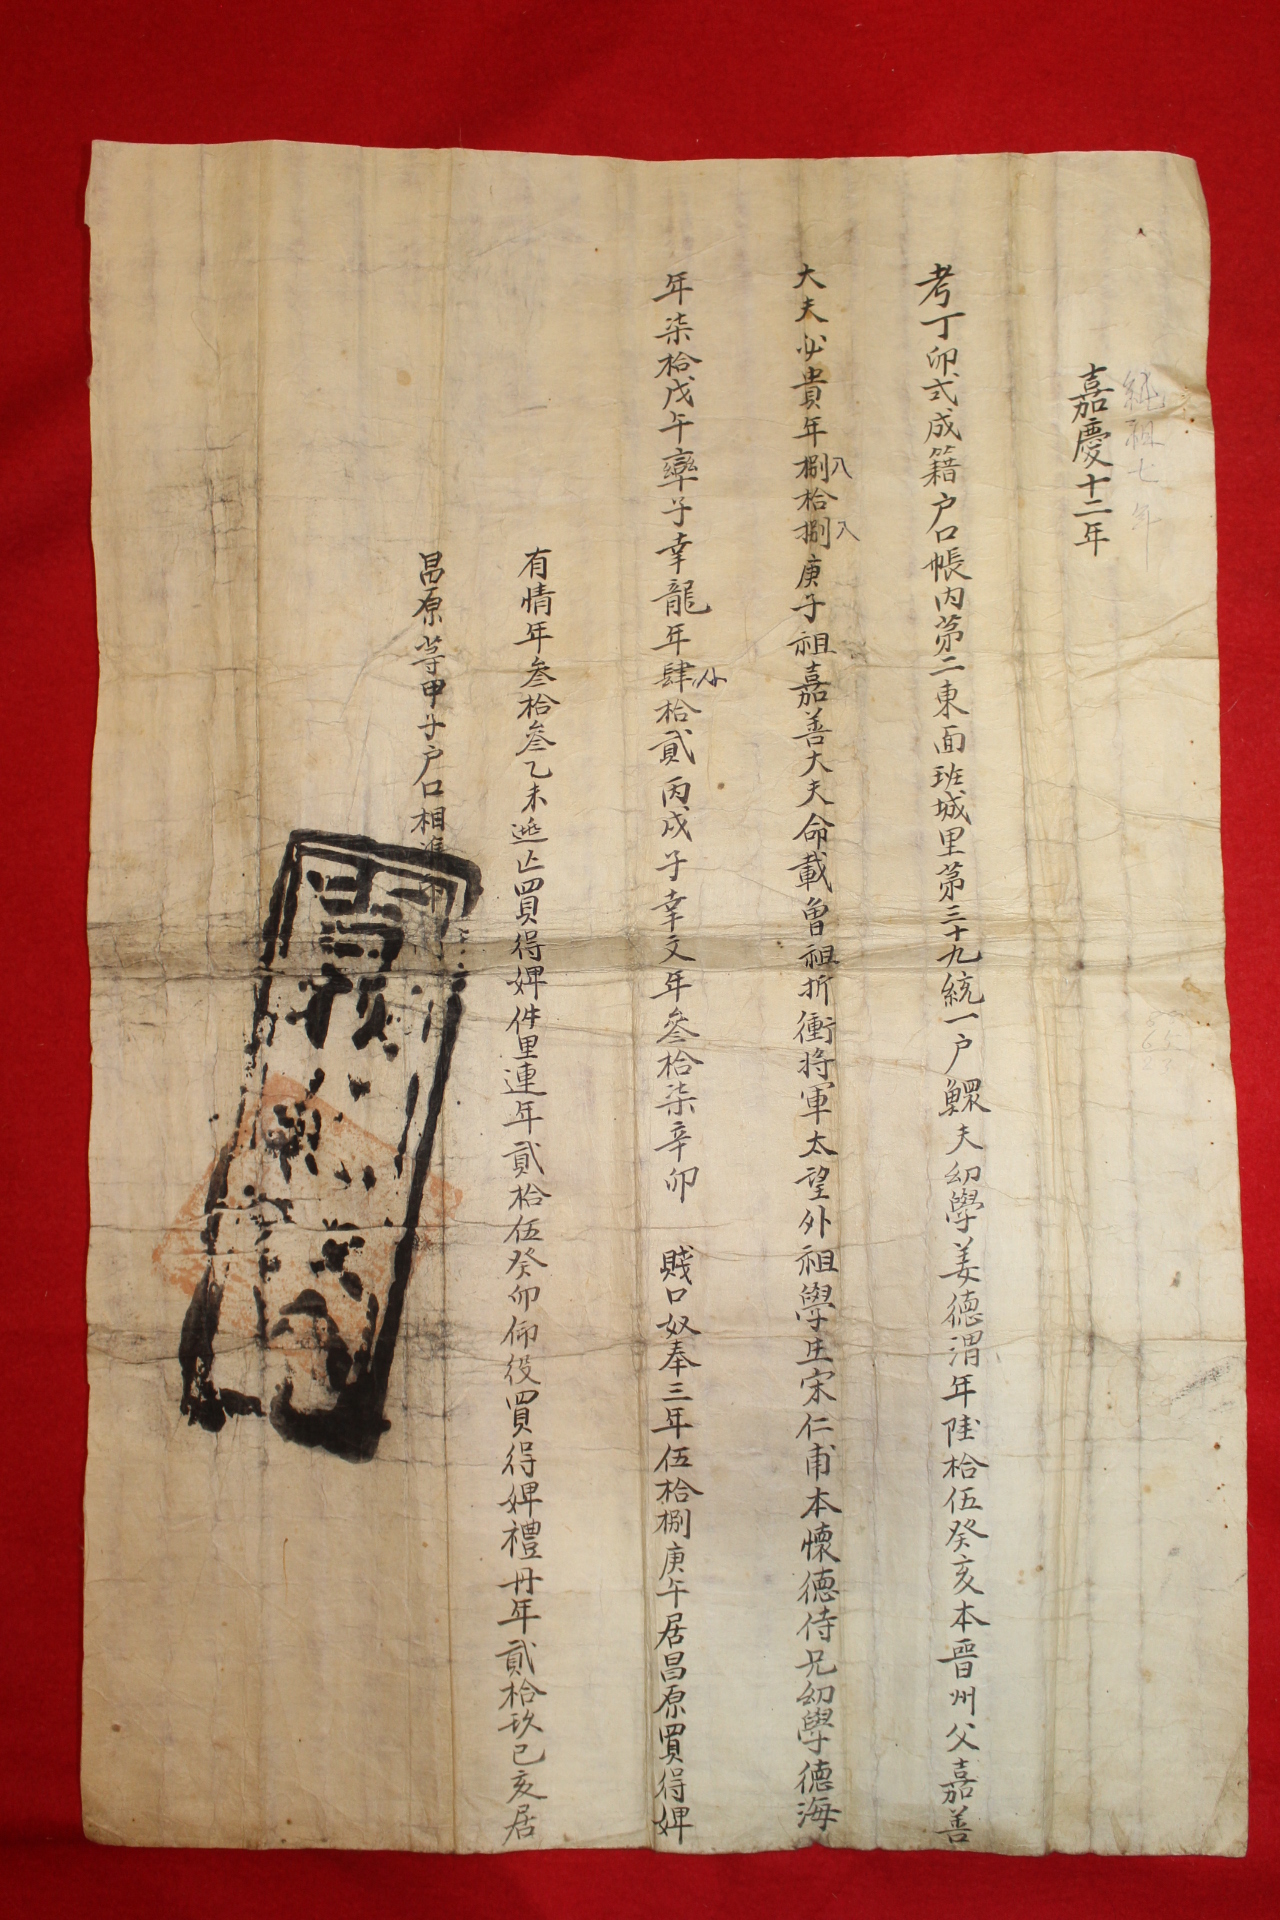 純祖七年
嘉慶十二年
考丁卯式成籍户口帳內苐二東面班城里苐三十九統一户鰥夫幼學姜德渭年陸拾伍癸亥本晋州父嘉善
大夫必貴年捌拾捌庚子祖嘉善大夫命載曾祖折衝將軍太望外祖學生宋仁甫本懷德侍兄幼學德海
八
八
年柒拾戊午率子幸龍年肆拾貳丙戌子幸文年叄拾柒辛卯 賤口奴奉三年伍拾捌庚午居昌原買得婢
有情年叄拾叄乙未逃亡買得婢件里連年貳拾伍癸卯仰役買得婢禮丹年貳拾玖己亥居
昌原等甲子户口相準